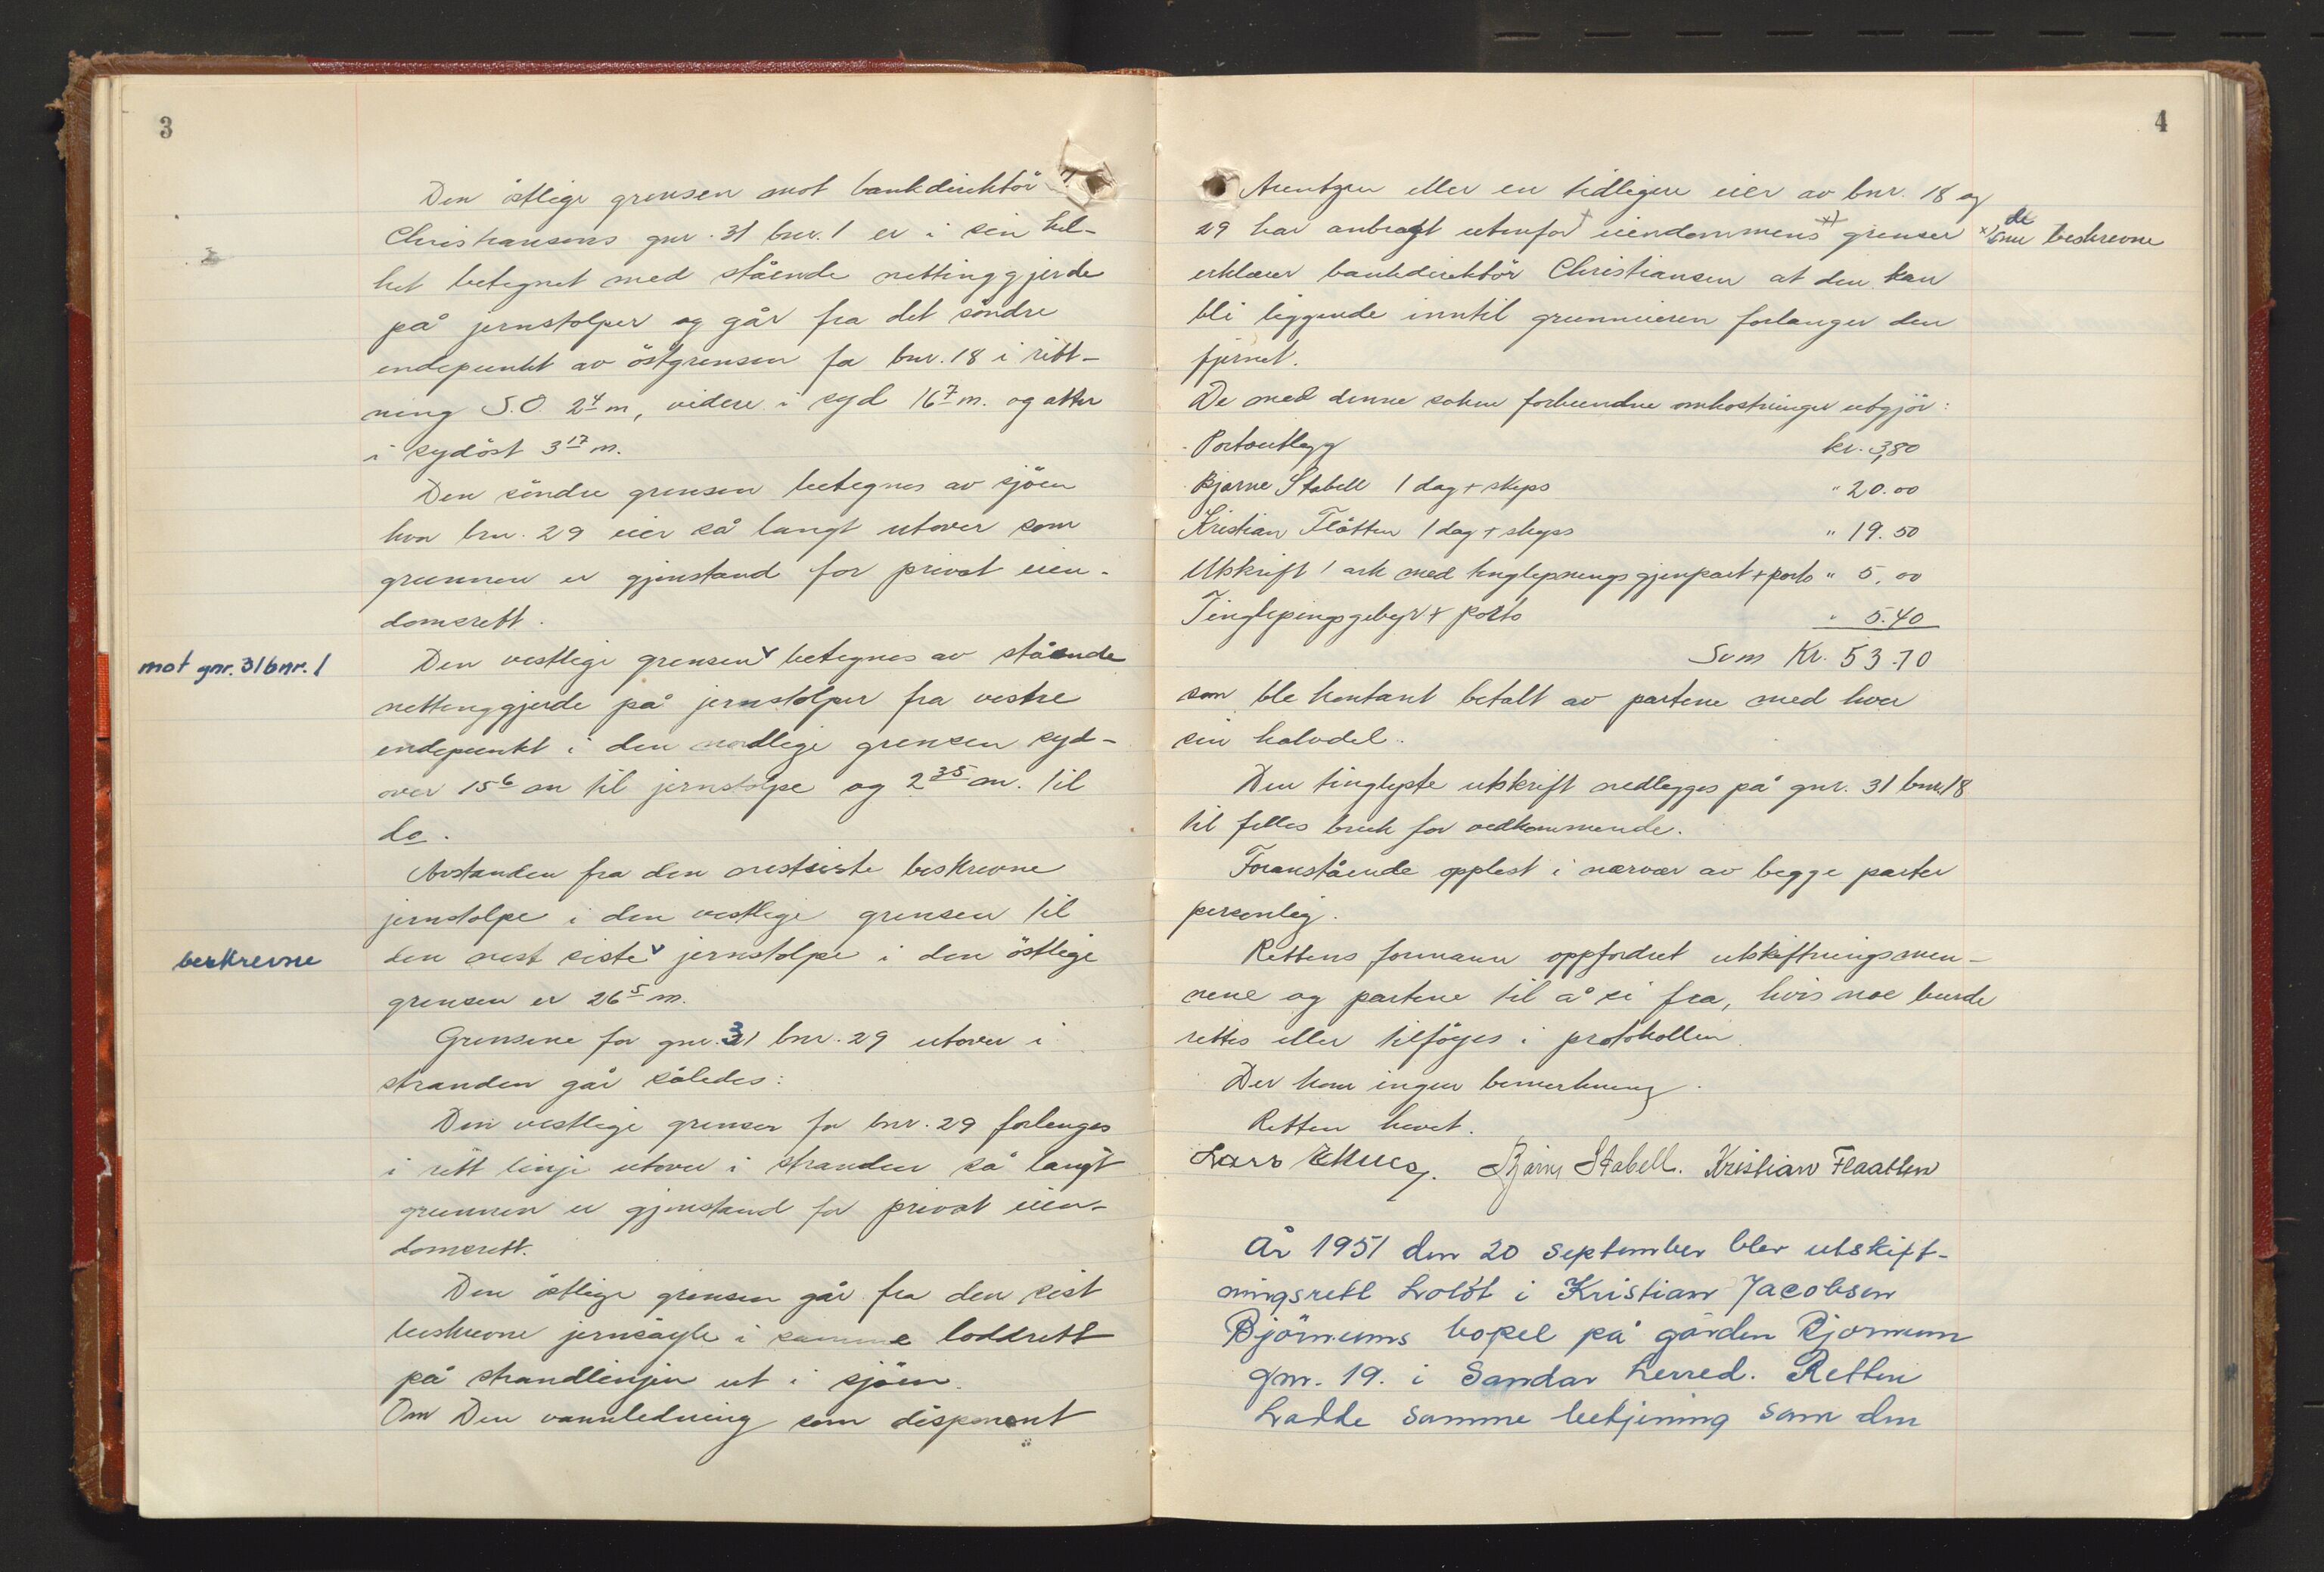 3
Den östlige grensen mot bankdirektör
Christiansens gnr. 31 bnr. 1 er i sin hel-
het betegnet med stående nettinggjerde
på jernstolper og går fra det söndre
endepunkt av östgrensen fa bnr. 18 i rett-
ning S.O. 2 4 m, videre i syd 16 7 m. og atter
i sydöst 3 17 m.
Den söndre grensen betegnes av sjöen
hvor bnr. 29 eier så langt utover som
grunnen er gjenstand for privat eien-
domsrett.
mot gnr. 31 bnr. 1
Den vestlige grensen v betegnes av stående
nettinggjerde på jernstolper fra vestre
endepunkt i den nordlige grensen syd-
over 15 6 m til jernstolpe og 2 35 m. til
do.
Avstanden fra den nestsiste beskrevne
jernstolpe i den vestlige grensen til
beskrevne
den nest siste v jernstolpe i den östlige
grensen er 26 5 m.
Grensene for gnr. 31 bnr. 29 utover i
stranden går således:
Den vestlige grensen for bnr. 29 forlenges
i rett linje utover i stranden så langt
grunnen er gjenstand for privat eien-
domsrett.
Den östlige grensen går fra den sist
beskrevne jernsöyle i samme loddrett
på strandlinjen ut i sjöen.
Om Den vannledning som disponent
4
Arentzen eller en tidligere eier av bnr. 18 og
29 har anbragt utenfor eiendommens x) grenser
x) de
beskrevne
erklærer bankdirektör Christiansen at den kan
bli liggende inntil grunneieren forlanger den
fjernet.
De med denne saken forbundne omkostninger utgjör:
Portoutlegg kr. 3,80
Bjarne Stabell 1 dag + skyss " 20.00
Kristian Flåtten 1 dag + skyss " 19.50
Utskrift 1 ark med tinglysnings gjenpart + porto " 5,00
Tinglysingsgebyr + porto " 5.40
Sum Kr. 53.70
som ble kontant betalt av partene med hver
sin halvdel.
Den tinglyste utskrift nedlegges på gnr. 31 bnr. 18
til felles bruk for vedkommende.
Foranstående opplest i nærvær av begge parter
personlig.
Rettens formann oppfordret utskiftningsmen-
nene og partene til å si fra, hvis noe burde
rettes eller tilföyes i protokollen.
Der kom ingen bemerkning.
Retten hevet.
Lars Bjarne Stabell. Kristian Flaatten
År 1951 den 20 september blev utskift-
ningsrett holdt i Kristian Jacobsen
Björnums bopel på gården Bjornum
gnr. 19. i Sandar herred. Retten
hadde samme betjening som den